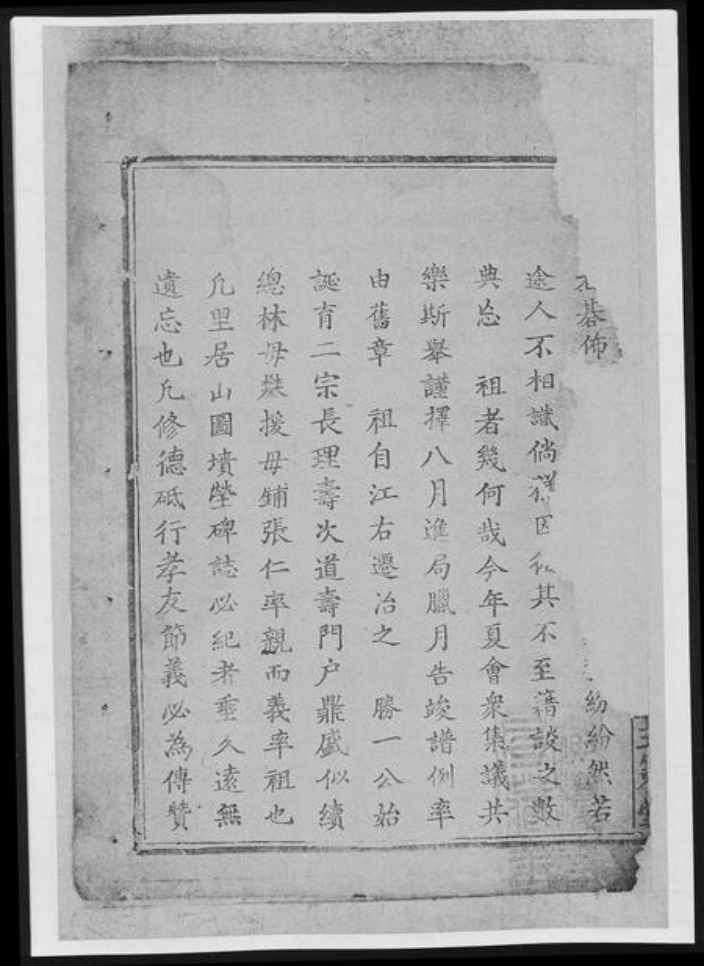 碁佈 紛紛然若
途人不相識倘 其不至籍談之數
典忘 祖者幾何哉今年夏會衆集議共
樂斯舉謹擇八月進局臘月告竣譜例率
由舊章 祖自江右遷冶之 勝一公始
誕育二宗長理壽次道壽門户鼎盛似續
總林毋 援毋鋪張仁率親而義率祖也
凢里居山圖墳塋碑誌必紀者垂久遠無
遺忘也凢修德砥行孝友節義必為傳贊